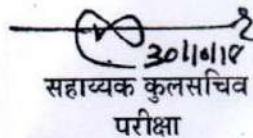 30/10/18
सहाय्यक कुलसचिव
परीक्षा